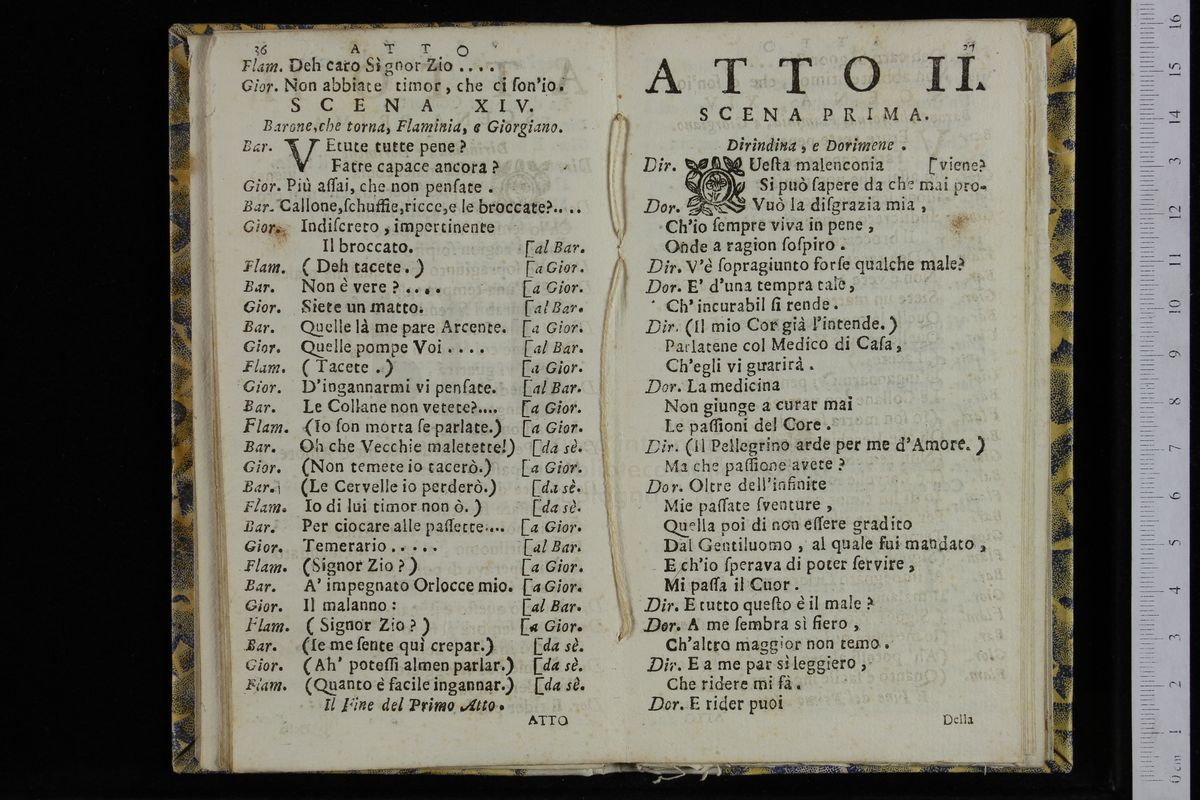 36 ATTO
Flam. Deh caro Signor Zio ....
Gior. Non abbiate timor, che ci ſon'io.
SCENA XIV.
Barone, che torna, Flaminia, e Giorgiano.
Bar. VEtute tutte pene?
Fatte capàce ancora?
Gior. Più aſſai, che non penſate.
Bar. Callone, ſchuffie, ricce, e le broccate?....
Gior. Indiſcreto, impertinente
Il broccato. [al Bar.
Flam. (Deh tacete.) [a Gior.
Bar. Non è vere?.... [a Gior.
Gior. Siete un matto. [al Bar.
Bar. Quelle là me pare Arcente. [a Gior.
Gior. Quelle pompe Voi .... [al Bar.
Flam. (Tacete.) [a Gior.
Gior. D'ingannarmi vi penſate. [al Bar.
Bar. Le Collane non vetete?.... [a Gior.
Flam. (Io ſon morta ſe parlate.) [a Gior.
Bar. Oh che Vecchie maletette!) [da sè.
Gior. (Non temete io tacerò.) [a Gior.
Bar. (Le Cervelle io perderò.) [da sè.
Flam. Io di lui timor non ò.) [da sè.
Bar. Per ciocare alle paſſette.... [a Gior.
Gior. Temerario ..... [al Bar.
Flam. (Signor Zio?) [a Gior.
Bar. A' impegnato Orlocce mio. [a Gior.
Gior. Il malanno: [al Bar.
Flam. (Signor Zio?) [a Gior.
Bar. (Ie me ſente quì crepar.) [da sè.
Gior. (Ah' poteſſi almen parlar.) [da sè.
Flam. (Quanto è facile ingannar.) [da sè.
Il Fine del Primo Atto.
ATTO
27
ATTO II.
SCENA PRIMA.
Dirindina, e Dorimene.
Dir. QUeſta malenconia [viene?
Si può ſapere da che mai pro-
Dor. Vuò la diſgrazia mia,
Ch'io ſempre viva in pene,
Onde a ragion ſoſpiro.
Dir. V'è ſopragiunto forſe qualche male?
Dor. E' d'una tempra tale,
Ch' incurabil ſi rende.
Dir. (Il mio Cor già l'intende.)
Parlatene col Medico di Caſa,
Ch'egli vi guarirà.
Dor. La medicina
Non giunge a curar mai
Le paſſioni del Core.
Dir. (Il Pellegrino arde per me d'Amore.)
Ma che paſſione avete?
Dor. Oltre dell'infinite
Mie paſſate ſventure,
Quella poi di non eſſere gradito
Dal Gentiluomo, al quale fui mandato,
E ch'io ſperava di poter ſervire,
Mi paſſa il Cuor.
Dir. E tutto queſto è il male?
Dor. A me ſembra sì fiero,
Ch'altro maggior non temo.
Dir. E a me par sì leggiero,
Che ridere mi fà.
Dor. E rider puoi
Della
0 cm 1 2 3 4 5 6 7 8 9 10 11 12 13 14 15 16